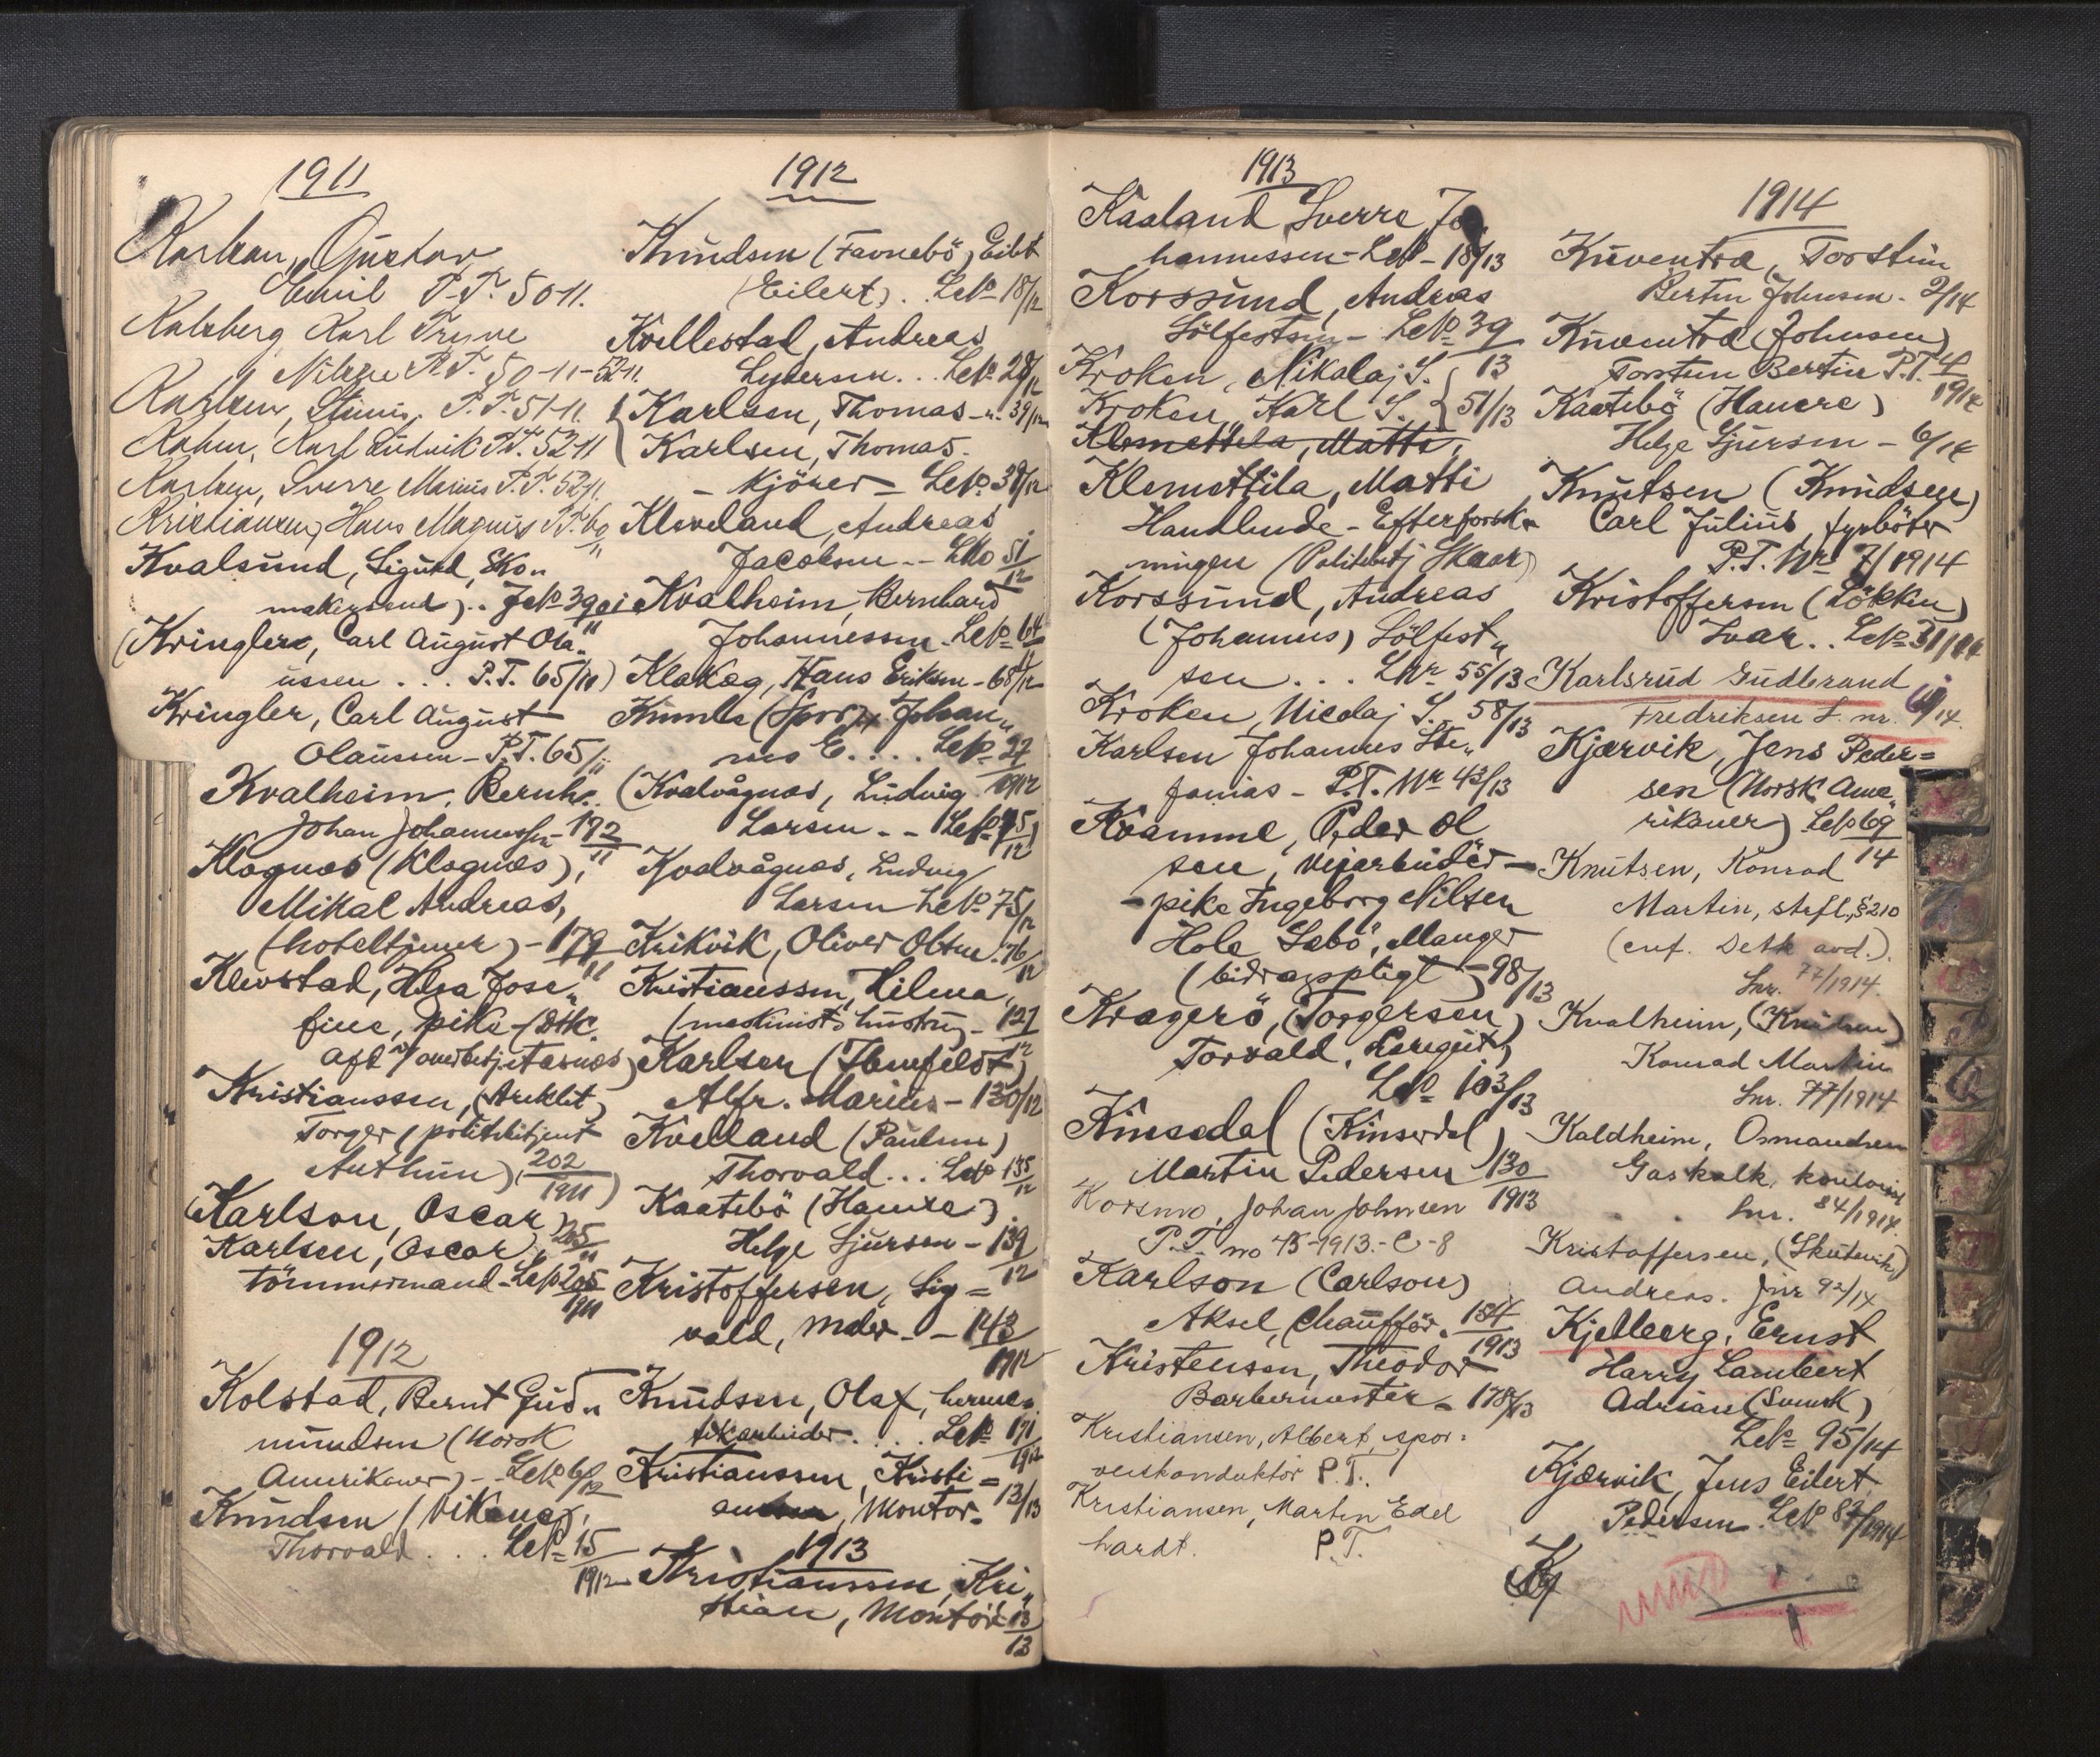 1911
Karlsen, Gustav
Emil P.T. 50-11.
Karl Tryve
P.T. 50-11-52-11.
P.T. 51-11.
Karl Ludvik P.T. 52-11
Karlsen, Sverre Marius P.T. 52-11.
Kristiansen, Hans Magnus P.T. 60/11
Kvalsund, Sigurd, Sko„
makersvend).. J№ 39 11
(Kringler, Carl August Ola„
ussen ... P.T. 65/11)
Kringler, Carl August
Olaussen - P.T. 65/11
Kvalheim, Bernh.
Johan Johannessen - 192/11
Klagnes (Klognæs),
Mikal Andreas,
(hoteltjener) - 179/11
Klevstad, Helga Jose„
fine, pike - (Dtk.
afd v/ overbetjet Aasnæs)
Kristianssen, (Areklet)
Torger (politibetjent
Anthun) (202/1911)
(Karlson, Oscar) 205/11
Karlsen, Oscar,
tömmermand - L№ 205/1911
1912
Kolstad, Bernt Gud„
mundsen (Norsk
Amerikaner) - L№ 6/12
Knudsen (Vikenes),
Thorvald . . . L№ 15/1912
1912
Knudsen (Favnebö) Eibt
(Eilert). . L№ 18/12
Kvellestad, Andreas
Lydersen. . . L№ 28/12
Karlsen, Thomas - „ 39/12
Karlsen, Thomas.
- Kjörer - L№ 39/12
Kleveland, Andreas
Jacobsen -- L№ 51/12
Kvalheim, Bernhard
Johannessen. L№ 64/12
Klakeg, Hans Eriksen - 68/12
Johan„
nes E. . . . L№ 27/1912
(Kvalvågnæs, Ludvig
Larsen - - L№ 75/12)
Kvalvågnæs, Ludvig
Larsen L№ 75/12
Krikvik, Oliver Olsen. 76/12
Kristianssen, Hilma,
(maskinists hustru) - 127/12
Karlsen (Ibenfeldt)
Alfr. Marius - 130/12
Kvelland (Paulsen)
Thorvald... L№ 135/12
Kaatebö (Haucre)
Helge Sjursen - 139/12
Kristoffersen, Sig=
vald, Maler - - 143/1912
Knudsen, Olaf, herme„
tikarbeider . . . L№ 171/1912
Kristianssen, Kristi=
, Montör - 13/13
1913
Kristianssen, Kri„
stian, Montör 13/13
1913
Kaaland, Sverre Jo„
hannessen - L№ - 18/13
Korssund, Andreas
Sölfestsen - L№ 39/13
Kroken, Nikolaj S.
Kroken, Karl S. } 51/13
Klemettila, Matti,
Klemettila, Matti
Handlende - Efterforsk„
ningen (Politibetj Skaar)
Korssund, Andreas
(Johannes) Sölfest„
sen . . . Lnr 55/13
Kroken, Nicolaj S. - 58/13
Karlsen Johannes Ste„
fanias - P.T. Nr 43/13
Kvamme, Peder Ol
sen, vejarbeider -
- pike Ingeborg Nilsen
Hole Sæbö, Manger
(bidragspligt) - 98/13
Kragerö, (Torgersen)
Torvald,
L№ 103/13
Kinsedal (Kinserdal)
Martin Pedersen 130/1913
Korsmo, Johan Johnsen
P.T. no 43-1913.- C-8
Karlson (Carlson)
Aksel, Chaufför. 154/1913
Kristensen, Theodor
Barbermester - 178/13
Kristiansen, Albert, spor=
veiskonduktör P.T.
Kristiansen, Martin Edel
hardt. P.T.
1914
Torstein
Bertin Johnsen - 2/14
(Johnsen)
Torstein Bertin P.T. 4/1914
Kaatebö (Haucre)
Helge Sjursen - 6/14
Knutsen (Knudsen)
Carl Julius, fyrböter
P.T. Nr 7/1914
Kristoffersen (Lökken)
Ivar . . L№ 31/14
Karlsrud Gudbrand
Fredriksen L. nr. /14.
Kjærvik, Jens Peder=
sen (Norsk Ame„
rikaner) L№ 69/14
Knutsen, Konrad
Martin, strfl., § 210
(enf. Detk avd.).
Lnr. 77/1914.
Kvalheim, (Knutsen)
Konrad Martin
Lnr. 77/1914
Kaldheim, Osmundsen
Lnr. 84/1914.
Kristoffersen, (Skutevik)
Andreas. Jnr 92/14
Kjellberg, Ernst
Harry Lambert
Adrian (Svensk)
L№ 95/14
Kjærvik, Jens Eilert
Pedersen L№ 82/1914